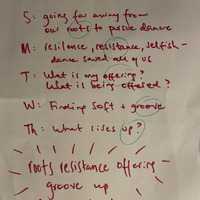 S: going far away from
our roots to pursue dance
M: resilance, resistance, selfish -
dance saved
T: What is my offering?
What is being offered?
W: Finding soft + groove
Th: What rises up?
roots resistance offering -
groove up